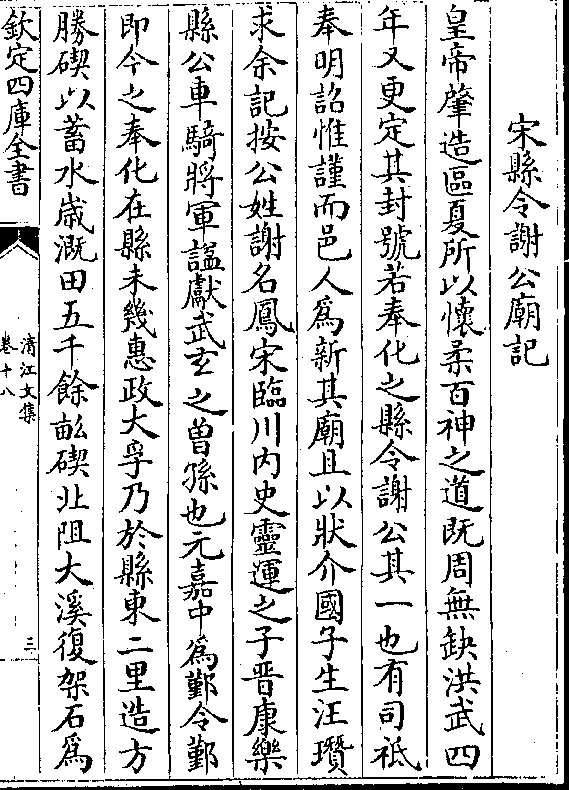 宋縣令謝公廟記
皇帝肇造區夏所以懷柔百神之道既周無缺洪武四
年又更定其封號若奉化之縣令謝公其一也有司祗
奉明詔惟謹而邑人為新其廟且以狀介國子生汪瓚
求余記按公姓謝名鳳宋臨川内史靈運之子晉康樂
縣公車騎將軍諡獻武玄之曽孫也元嘉中為鄞令鄞
即今之奉化在縣未幾惠政大孚乃於縣東二里造方
勝碶以蓄水歳溉田五千餘畝碶北阻大溪復架石為
欽定四庫全書
清江文集
卷十八
三